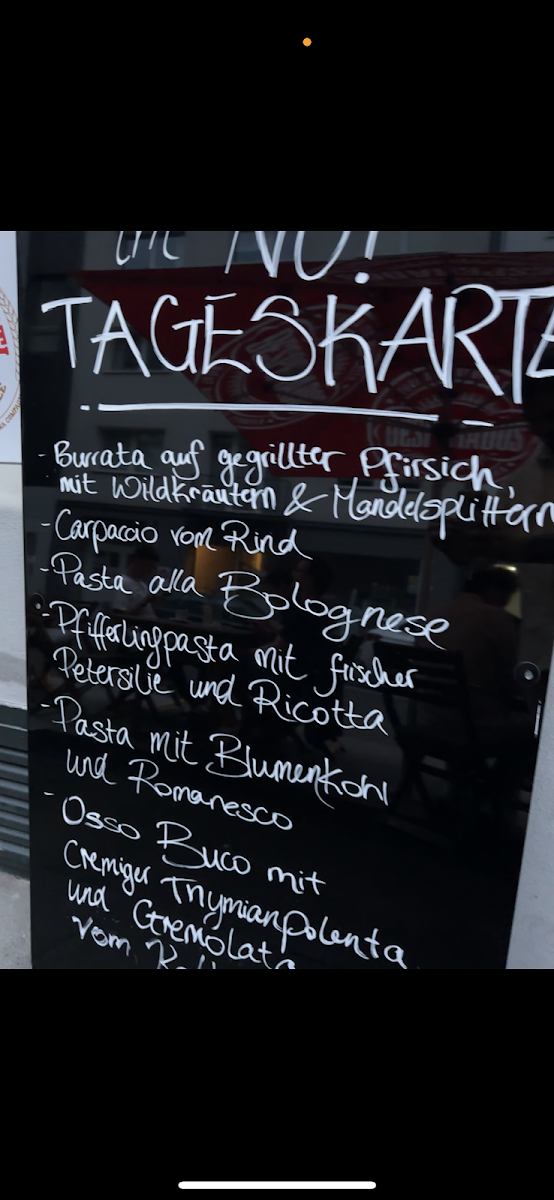 NO!
TAGESKARTE
- Burrata auf gegrillter Pfirsich,
mit Wildkräutern & Mandelsplittern
- Carpaccio vom Rind
- Pasta alla Bolognese
- Pfifferlingpasta mit frischer
Petersilie und Ricotta
- Pasta mit Blumenkohl
und Romanesco
- Osso Buco mit
Cremiger Thymianpolenta
und Gremolata
vom